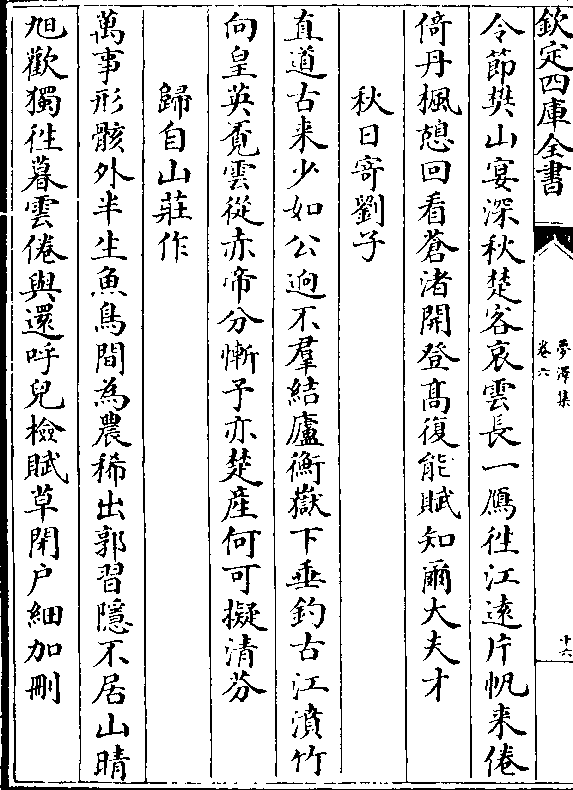 欽定四庫全書
夢澤集
卷六
十六
令節樊山宴深秋楚客哀雲長一鴈徃江遠片帆来倦
倚丹楓憩回看蒼渚開登髙復能賦知爾大夫才
秋日寄劉子
直道古来少如公迥不羣結廬衡嶽下垂釣古江濆竹
向皇英覔雲從赤帝分慚予亦楚産何可擬清芬
歸自山莊作
萬事形骸外半生魚鳥間為農稀出郭習隠不居山晴
旭歡獨徃暮雲倦與還呼兒檢賦草閉户細加刪